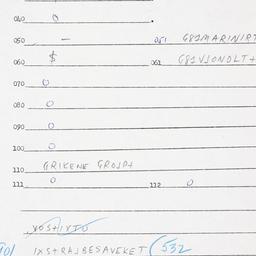 040 0
050 – 051 G81MARINIRT
060 $ 061 G81VJONDLT+
070 0
080 0
090 0
100 0
110 GRIKENE GROJD+
111 0 112 0
101 IXS+RAJBESAVEKET (532